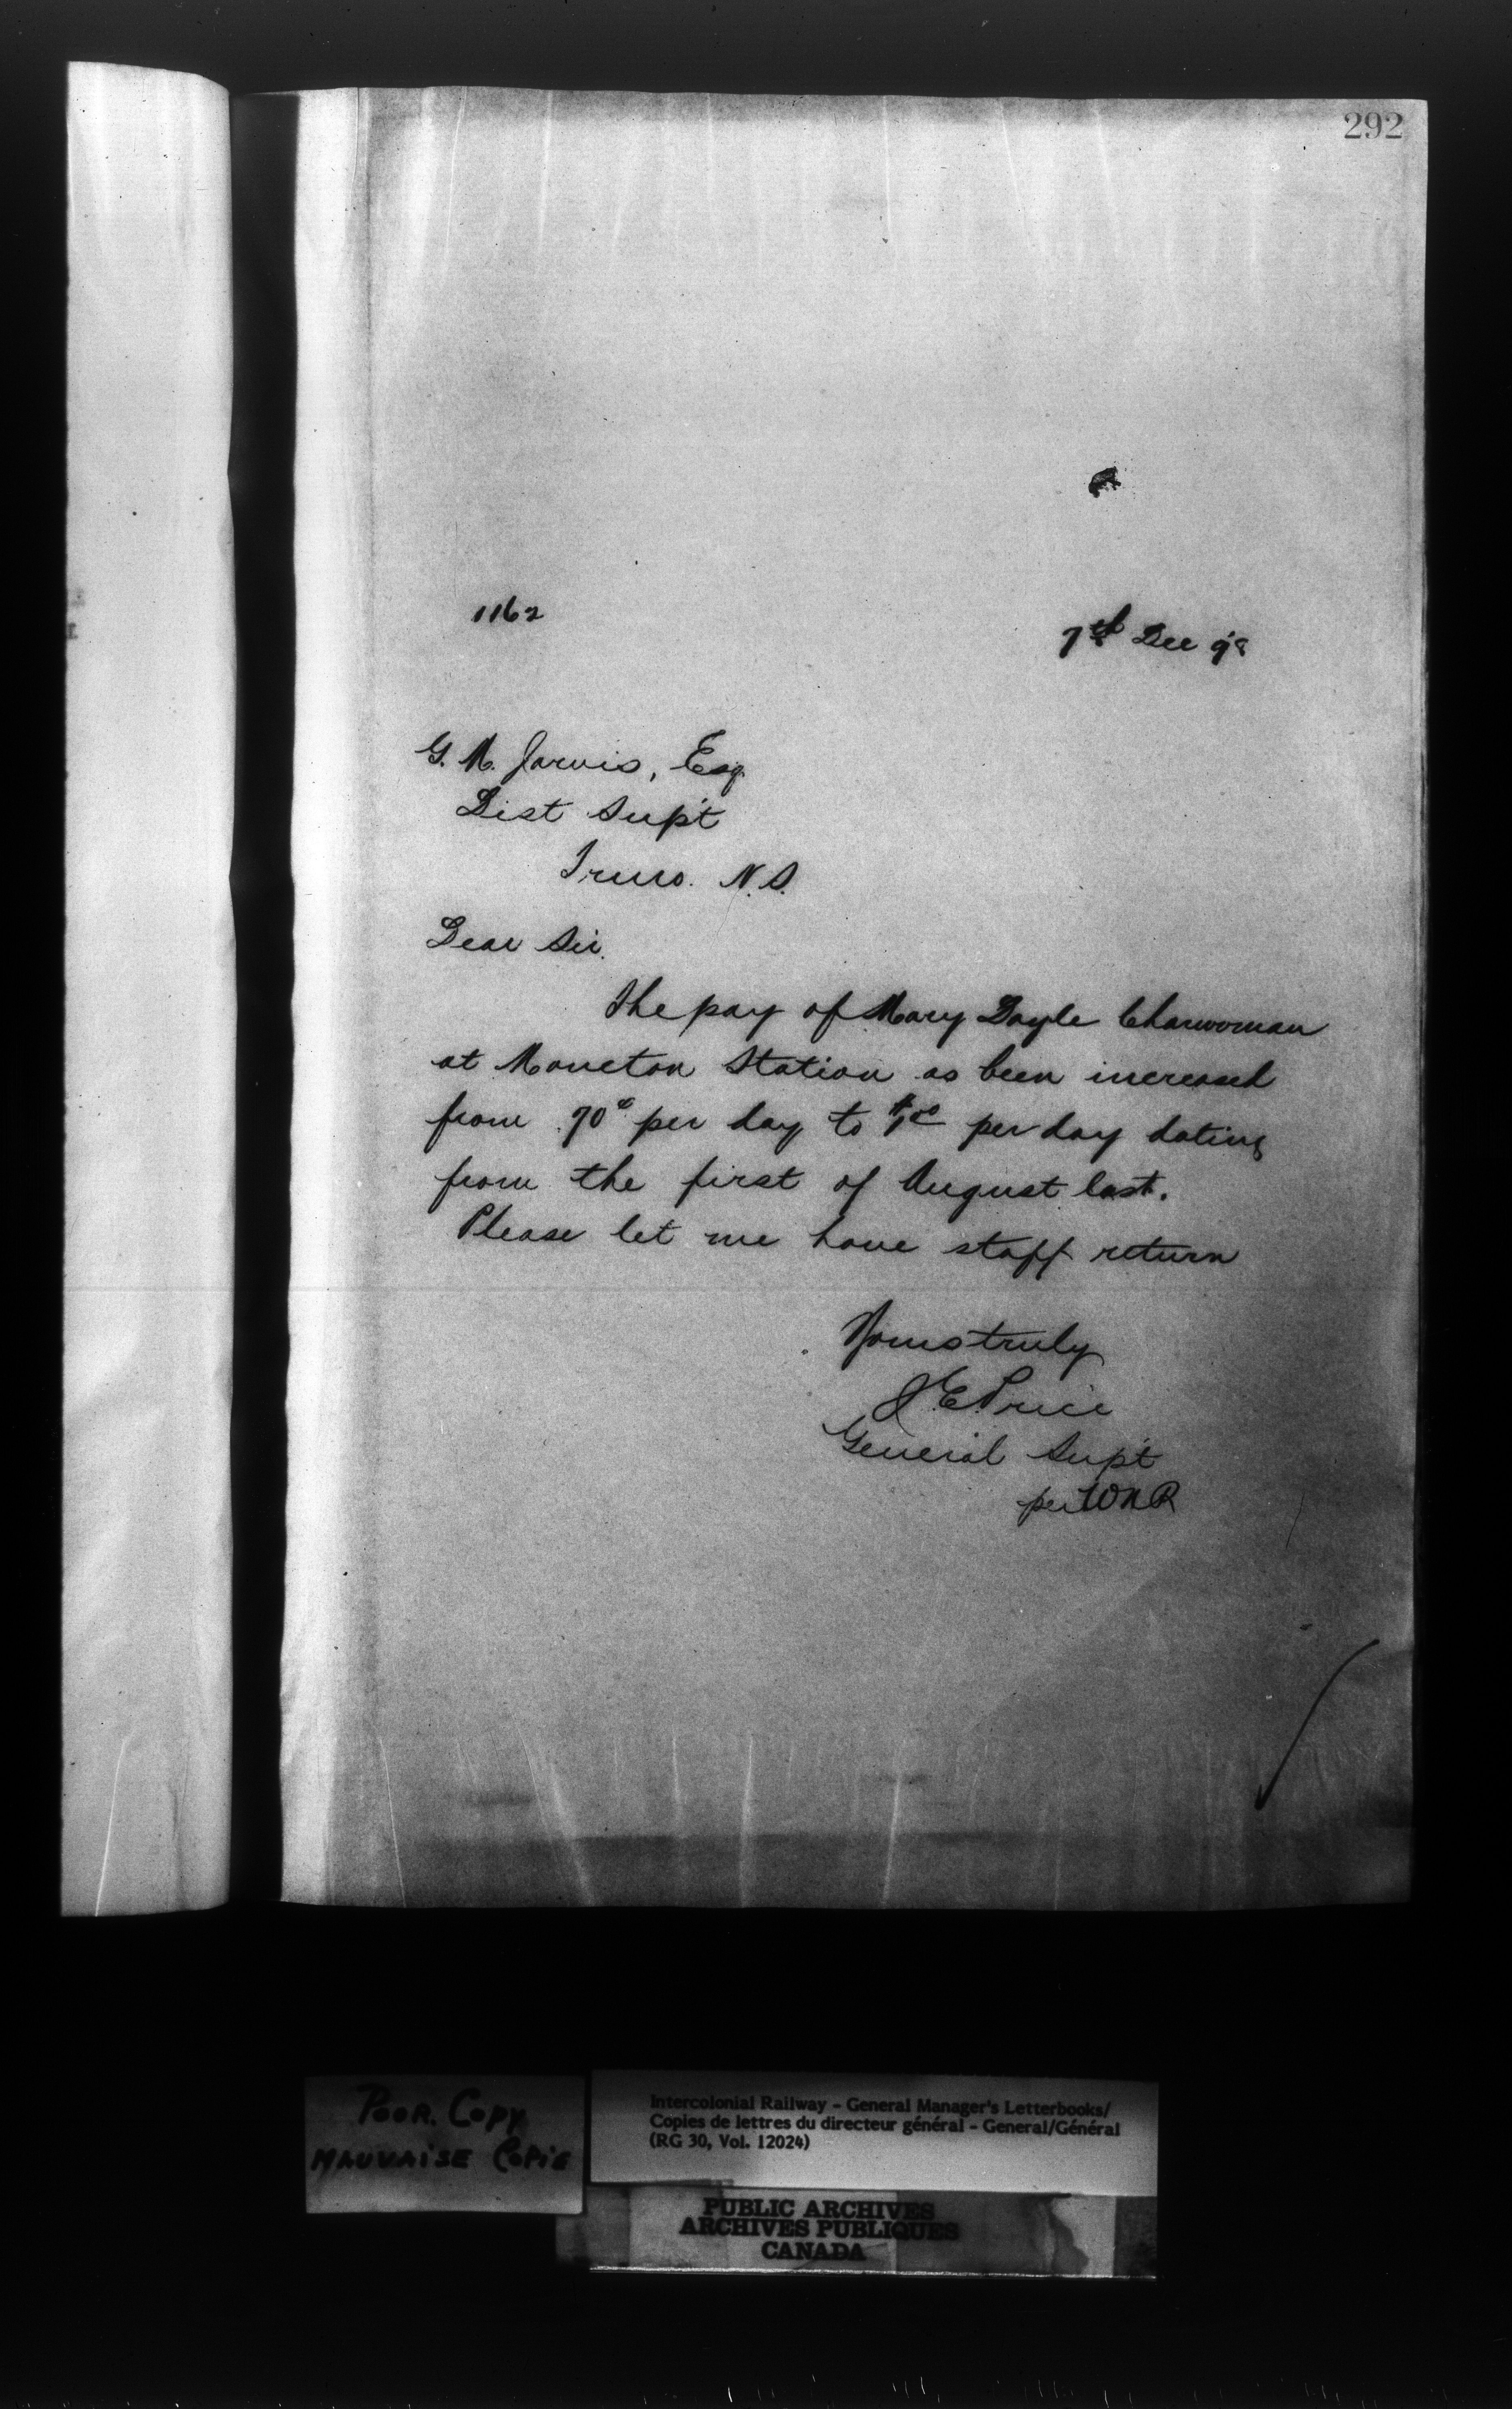 292
1162
7th Dec 98
G. M. Jarvis, Esq
Dist Supt
Truro. N.S.
Dear Sir.
The pay of Mary Doyle Charwoman
at Moncton Station as been increased
from .70¢ per day to $1.00 per day dating
from the first of August last.
Please let me have staff return
Yours truly
J.E. Price
General Supt
per WNR
POOR. COPY
MAUVAISE COPIE
Intercolonial Railway - General Manager's Letterbooks/
Copies de lettres du directeur général - General/Général
(RG 30, Vol. 12024)
PUBLIC ARCHIVES
ARCHIVES PUBLIQUES
CANADA